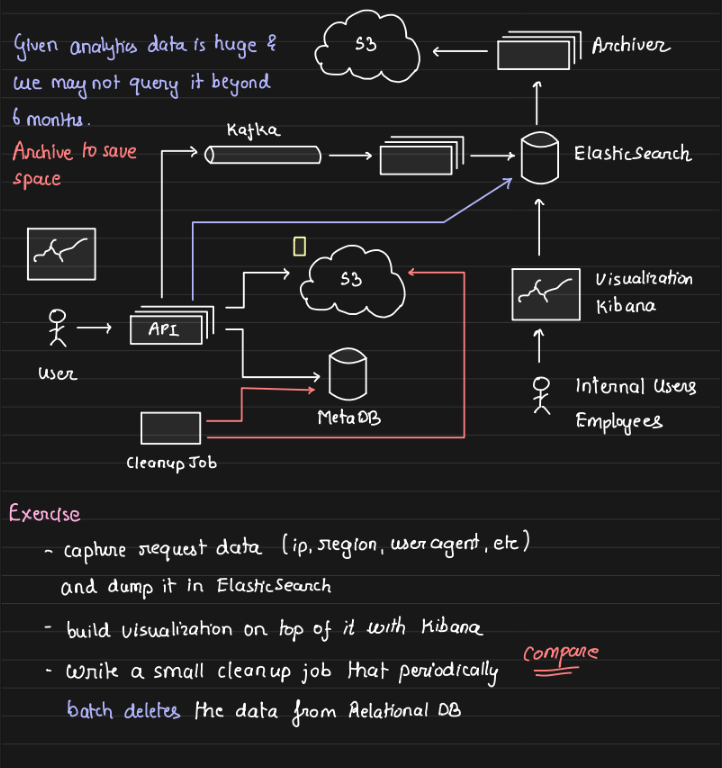 Given analytics data is huge &
we may not query it beyond
6 months.
Archive to save
space
S3
Archiver
Kafka
ElasticSearch
S3
Visualization
Kibana
API
user
MetaDB
Internal Users
Employees
Cleanup Job
Exercise
- capture request data (ip, region, user agent, etc)
and dump it in ElasticSearch
- build visualization on top of it with Kibana
- write a small cleanup job that periodically
compare
batch deletes the data from Relational DB